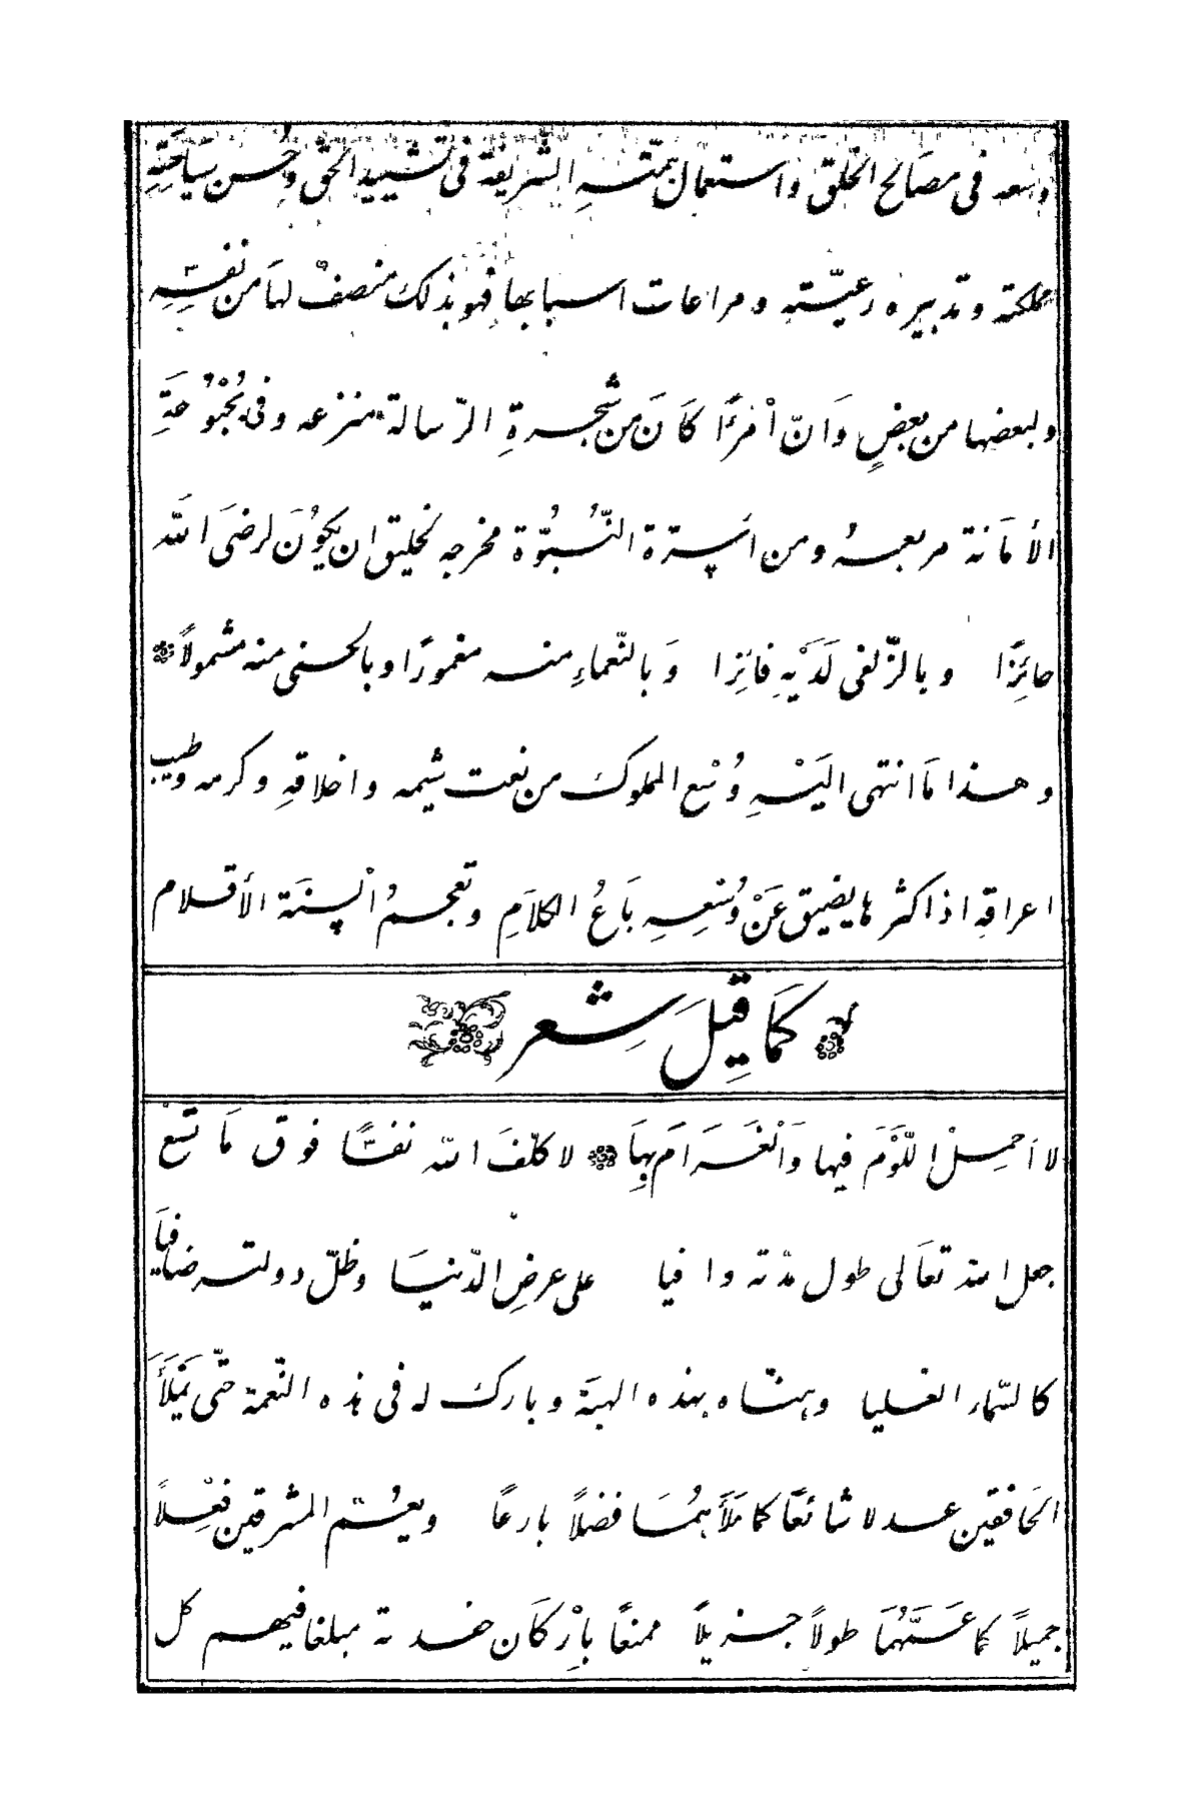 وسعه فى مصَالح الخَلق وَاستعمال همّته الشّريفة فى تشييد الحَق وحُسن سيَاسَتِهِ
مملكته وتدبيره رعيّته ومراعات اسبابها فهو بذلك منصفٌ لهَا من نفسِهِ
ولبعضها من بعضٍ وَانّ امْرءًا كَانَ من شجرةِ الرّسالة منزعه وفى بُحْبُوحَةِ
الأمَانة مربعهُ ومن اُسرَة النّبُوّة مخرجه لخليق ان يكُونَ لرضىَ اللّه
حائزًا وبالزّلفى لَدَيْهِ فائزا وَبالنّعماءِ منه مغمورًا وبالحسنى منه مشمولاً
وهذا مَا انتهى اليَهِ وُسْع المملوك من نعت شيمه واخلاقهِ وكرمه وطيب
اعراقهِ اذ اكثرها يضيق عَنْ وُسْعِهِ بَاعُ الكلاَمِ وتعجمُ اْلسِنَة الأقلام
كَمَا قِيلَ شِعر
لا اَحمِلْ اللَّوْمَ فيها وَالْغَرَامَ بِهَا لا كلّفَ اللّه نفسًا فوق مَا تسَعْ
جعل اللّه تعَالى طول مدّته وافيا على عرضِ الدّنيَا وظلّ دولته ضافيًا
كالسّماء العليا وهنّاه بهذه الهبَة وبارك له فى هذه النّعمة حتّى يَمْلَأَ
الخَافقين عدلا شائعًا كما مَلَأَهُمَا فضلاً بارعًا ويعُمّ المشرقين فِعْلاً
جميلاً كما عَمَّهُمَا طولاً جزيلاً ممنعًا بِاَرْكَان خدمته مبلغا فيهم كل